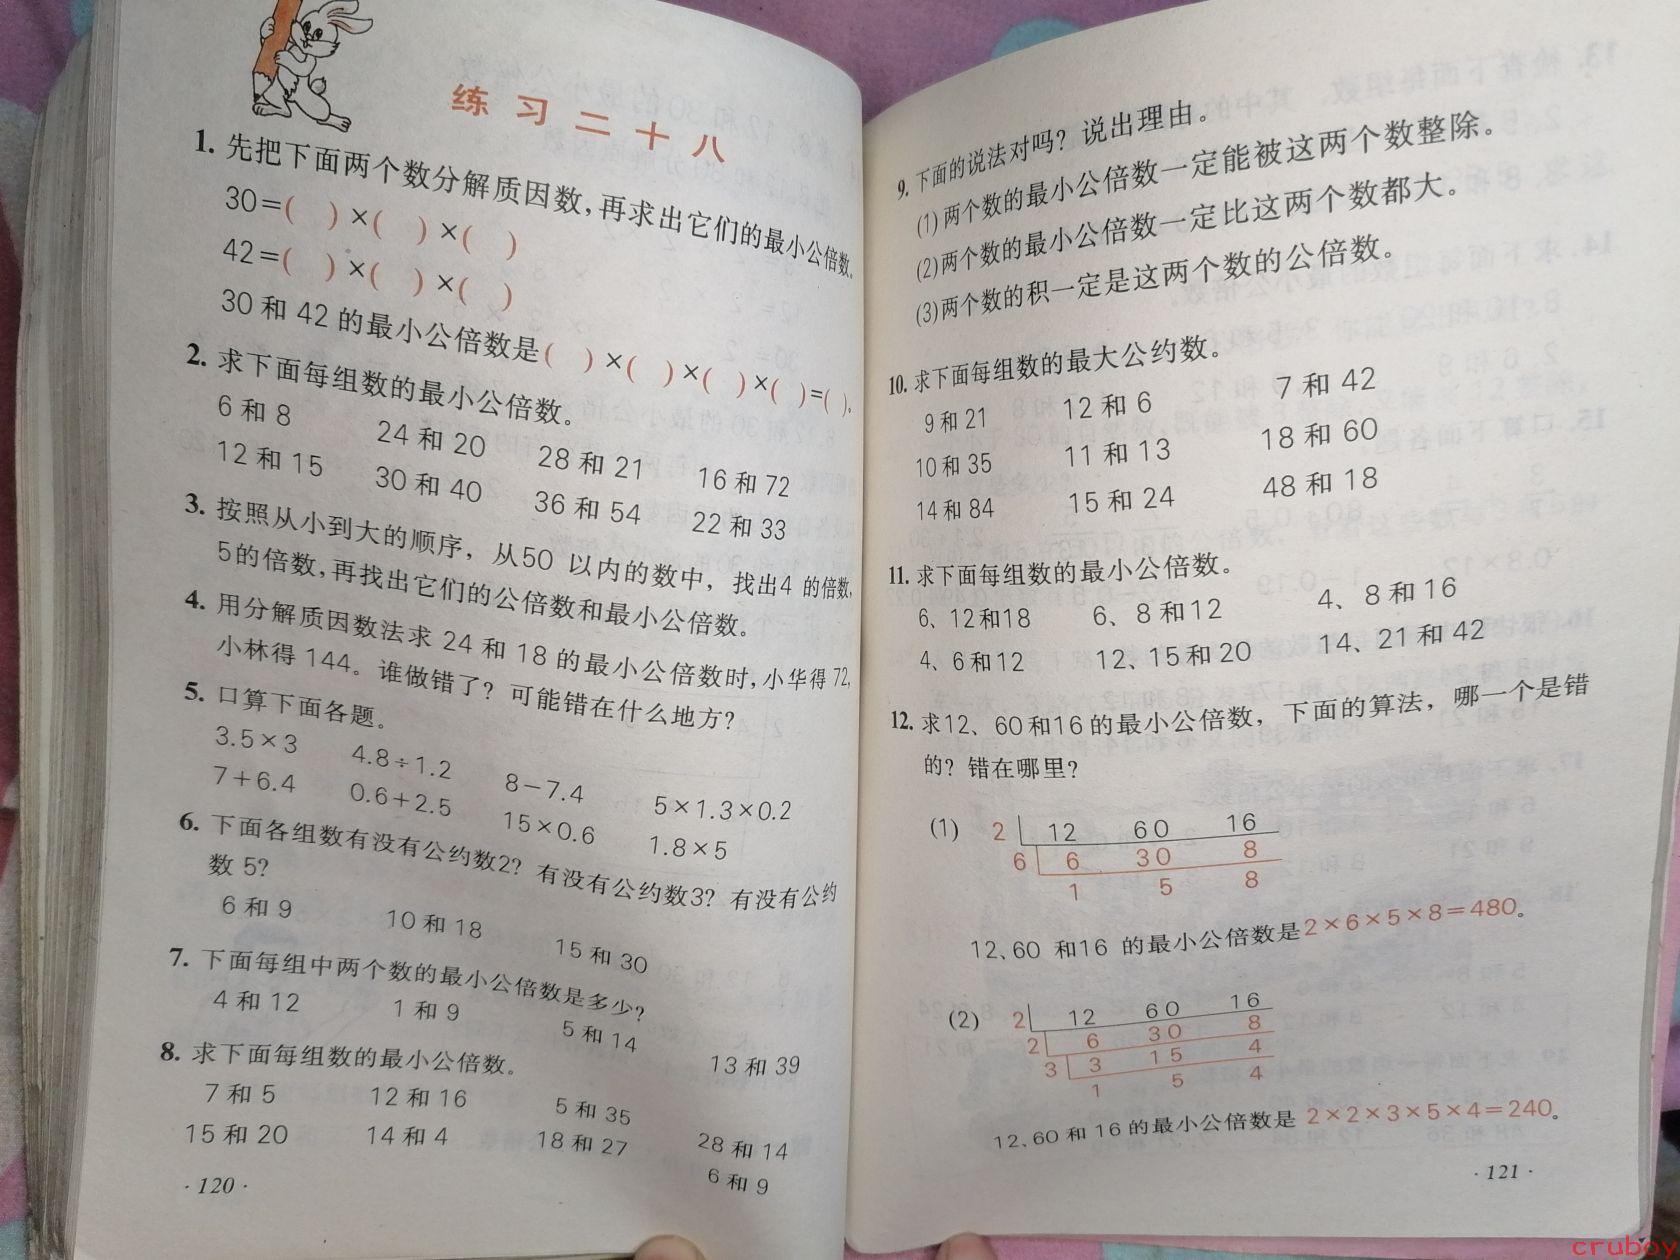 练习二十八
1. 先把下面两个数分解质因数,再求出它们的最小公倍数。
30=( )×( )×( )
42=( )×( )×( )
30 和 42 的最小公倍数是( )×( )×( )×( )=( )。
2. 求下面每组数的最小公倍数。
6 和 8 24 和 20 28 和 21 16 和 72
12 和 15 30 和 40 36 和 54 22 和 33
3. 按照从小到大的顺序，从50 以内的数中，找出4 的倍数,
5的倍数,再找出它们的公倍数和最小公倍数。
4. 用分解质因数法求 24 和 18 的最小公倍数时,小华得 72,
小林得 144。谁做错了？可能错在什么地方？
5. 口算下面各题。
3.5×3 4.8÷1.2 8−7.4 5×1.3×0.2
7+6.4 0.6+2.5 15×0.6 1.8×5
6. 下面各组数有没有公约数2？有没有公约数3？有没有公约
数 5？
6 和 9 10 和 18 15 和 30
7. 下面每组中两个数的最小公倍数是多少？
4 和 12 1 和 9 5 和 14 13 和 39
8. 求下面每组数的最小公倍数。
7 和 5 12 和 16 5 和 35 28 和 14
15 和 20 14 和 4 18 和 27 6 和 9
· 120 ·
9. 下面的说法对吗？说出理由。
(1)两个数的最小公倍数一定能被这两个数整除。
(2)两个数的最小公倍数一定比这两个数都大。
(3)两个数的积一定是这两个数的公倍数。
10. 求下面每组数的最大公约数。
9 和 21 12 和 6 7 和 42
10 和 35 11 和 13 18 和 60
14 和 84 15 和 24 48 和 18
11. 求下面每组数的最小公倍数。
6、12和18 6、8 和 12 4、8 和 16
4、6 和 12 12、15 和 20 14、21 和 42
12. 求12、60和16的最小公倍数，下面的算法，哪一个是错
的？错在哪里？
(1) 2 12 60 16
6 6 30 8
1 5 8
12、60 和16 的最小公倍数是2×6×5×8=480。
(2) 2 12 60 16
2 6 30 8
3 3 15 4
1 5 4
12、60 和 16 的最小公倍数是 2×2×3×5×4=240。
· 121 ·
cruboy